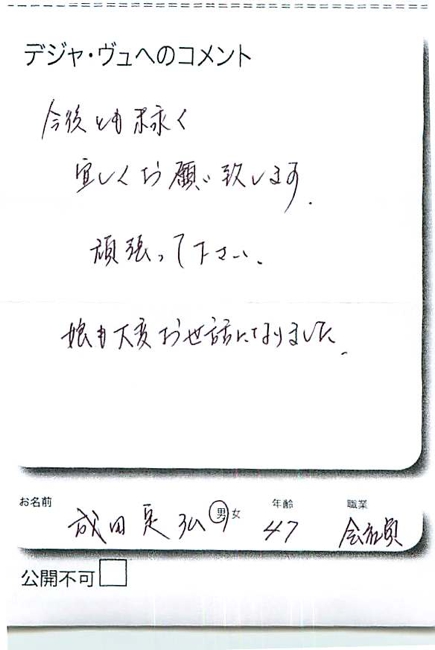 デジャ・ヴュへのコメント
今後とも末永く
宜しくお願い致します.
頑張って下さい.
娘も大変お世話になりました.
お名前
年齢
職業
成田 弘 男 女
47
会社員
公開不可